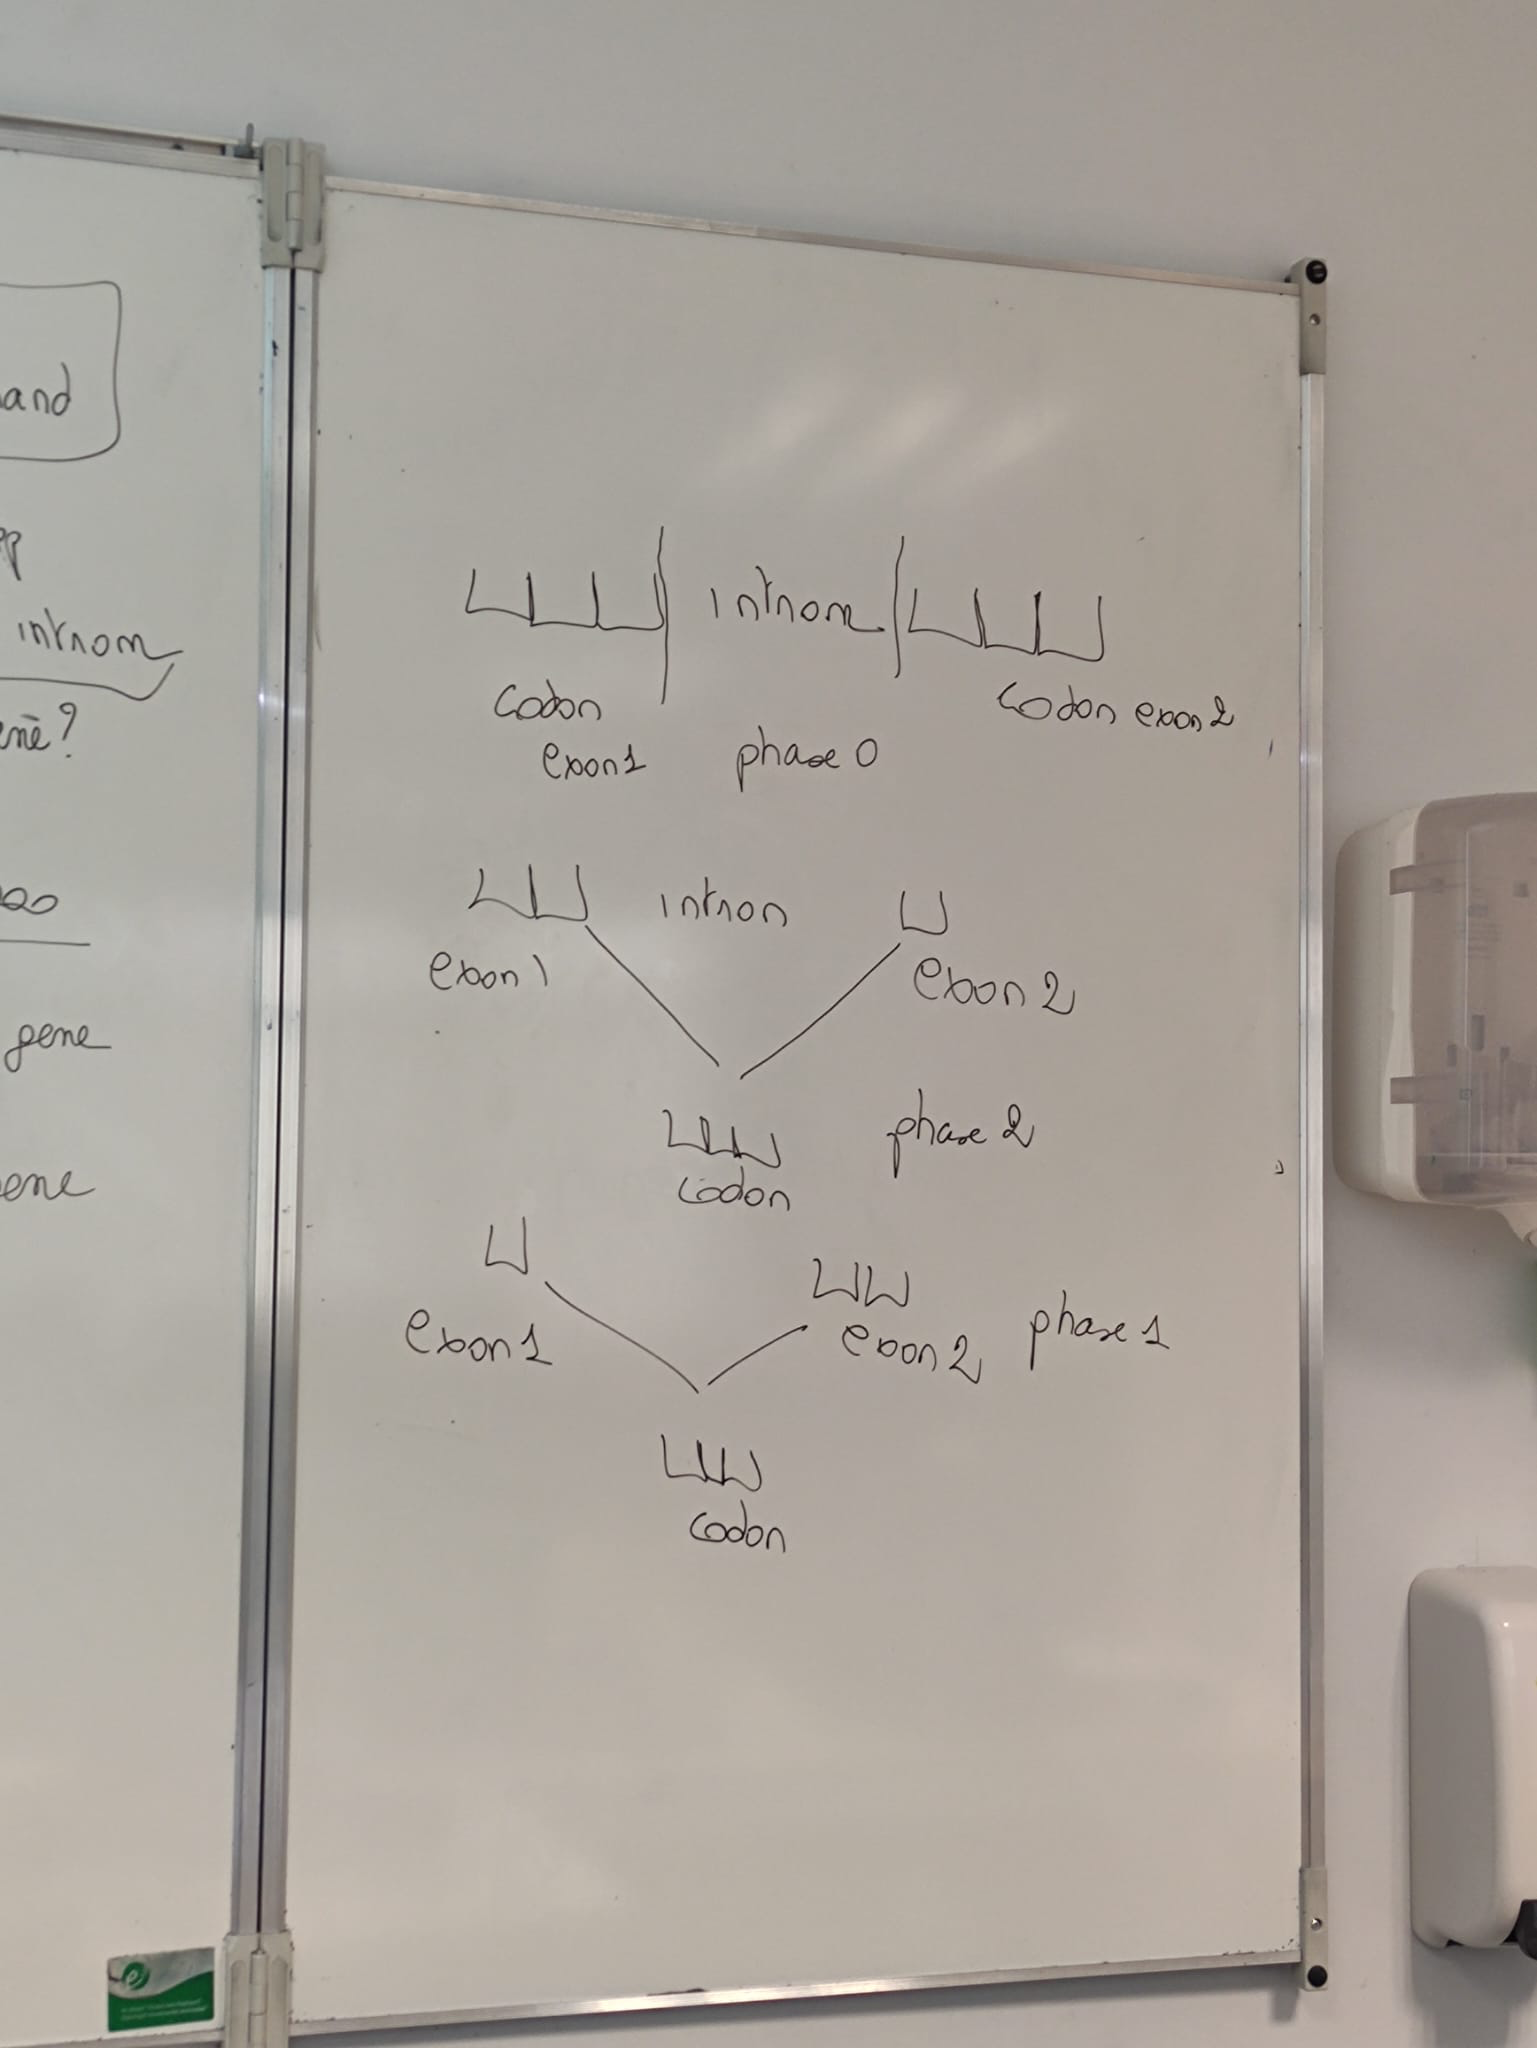 and
intron
gene
intron
codon
exon1
codon exon2
phase 0
intron
exon1
exon2
codon
phase 2
exon1
exon2
phase 1
codon